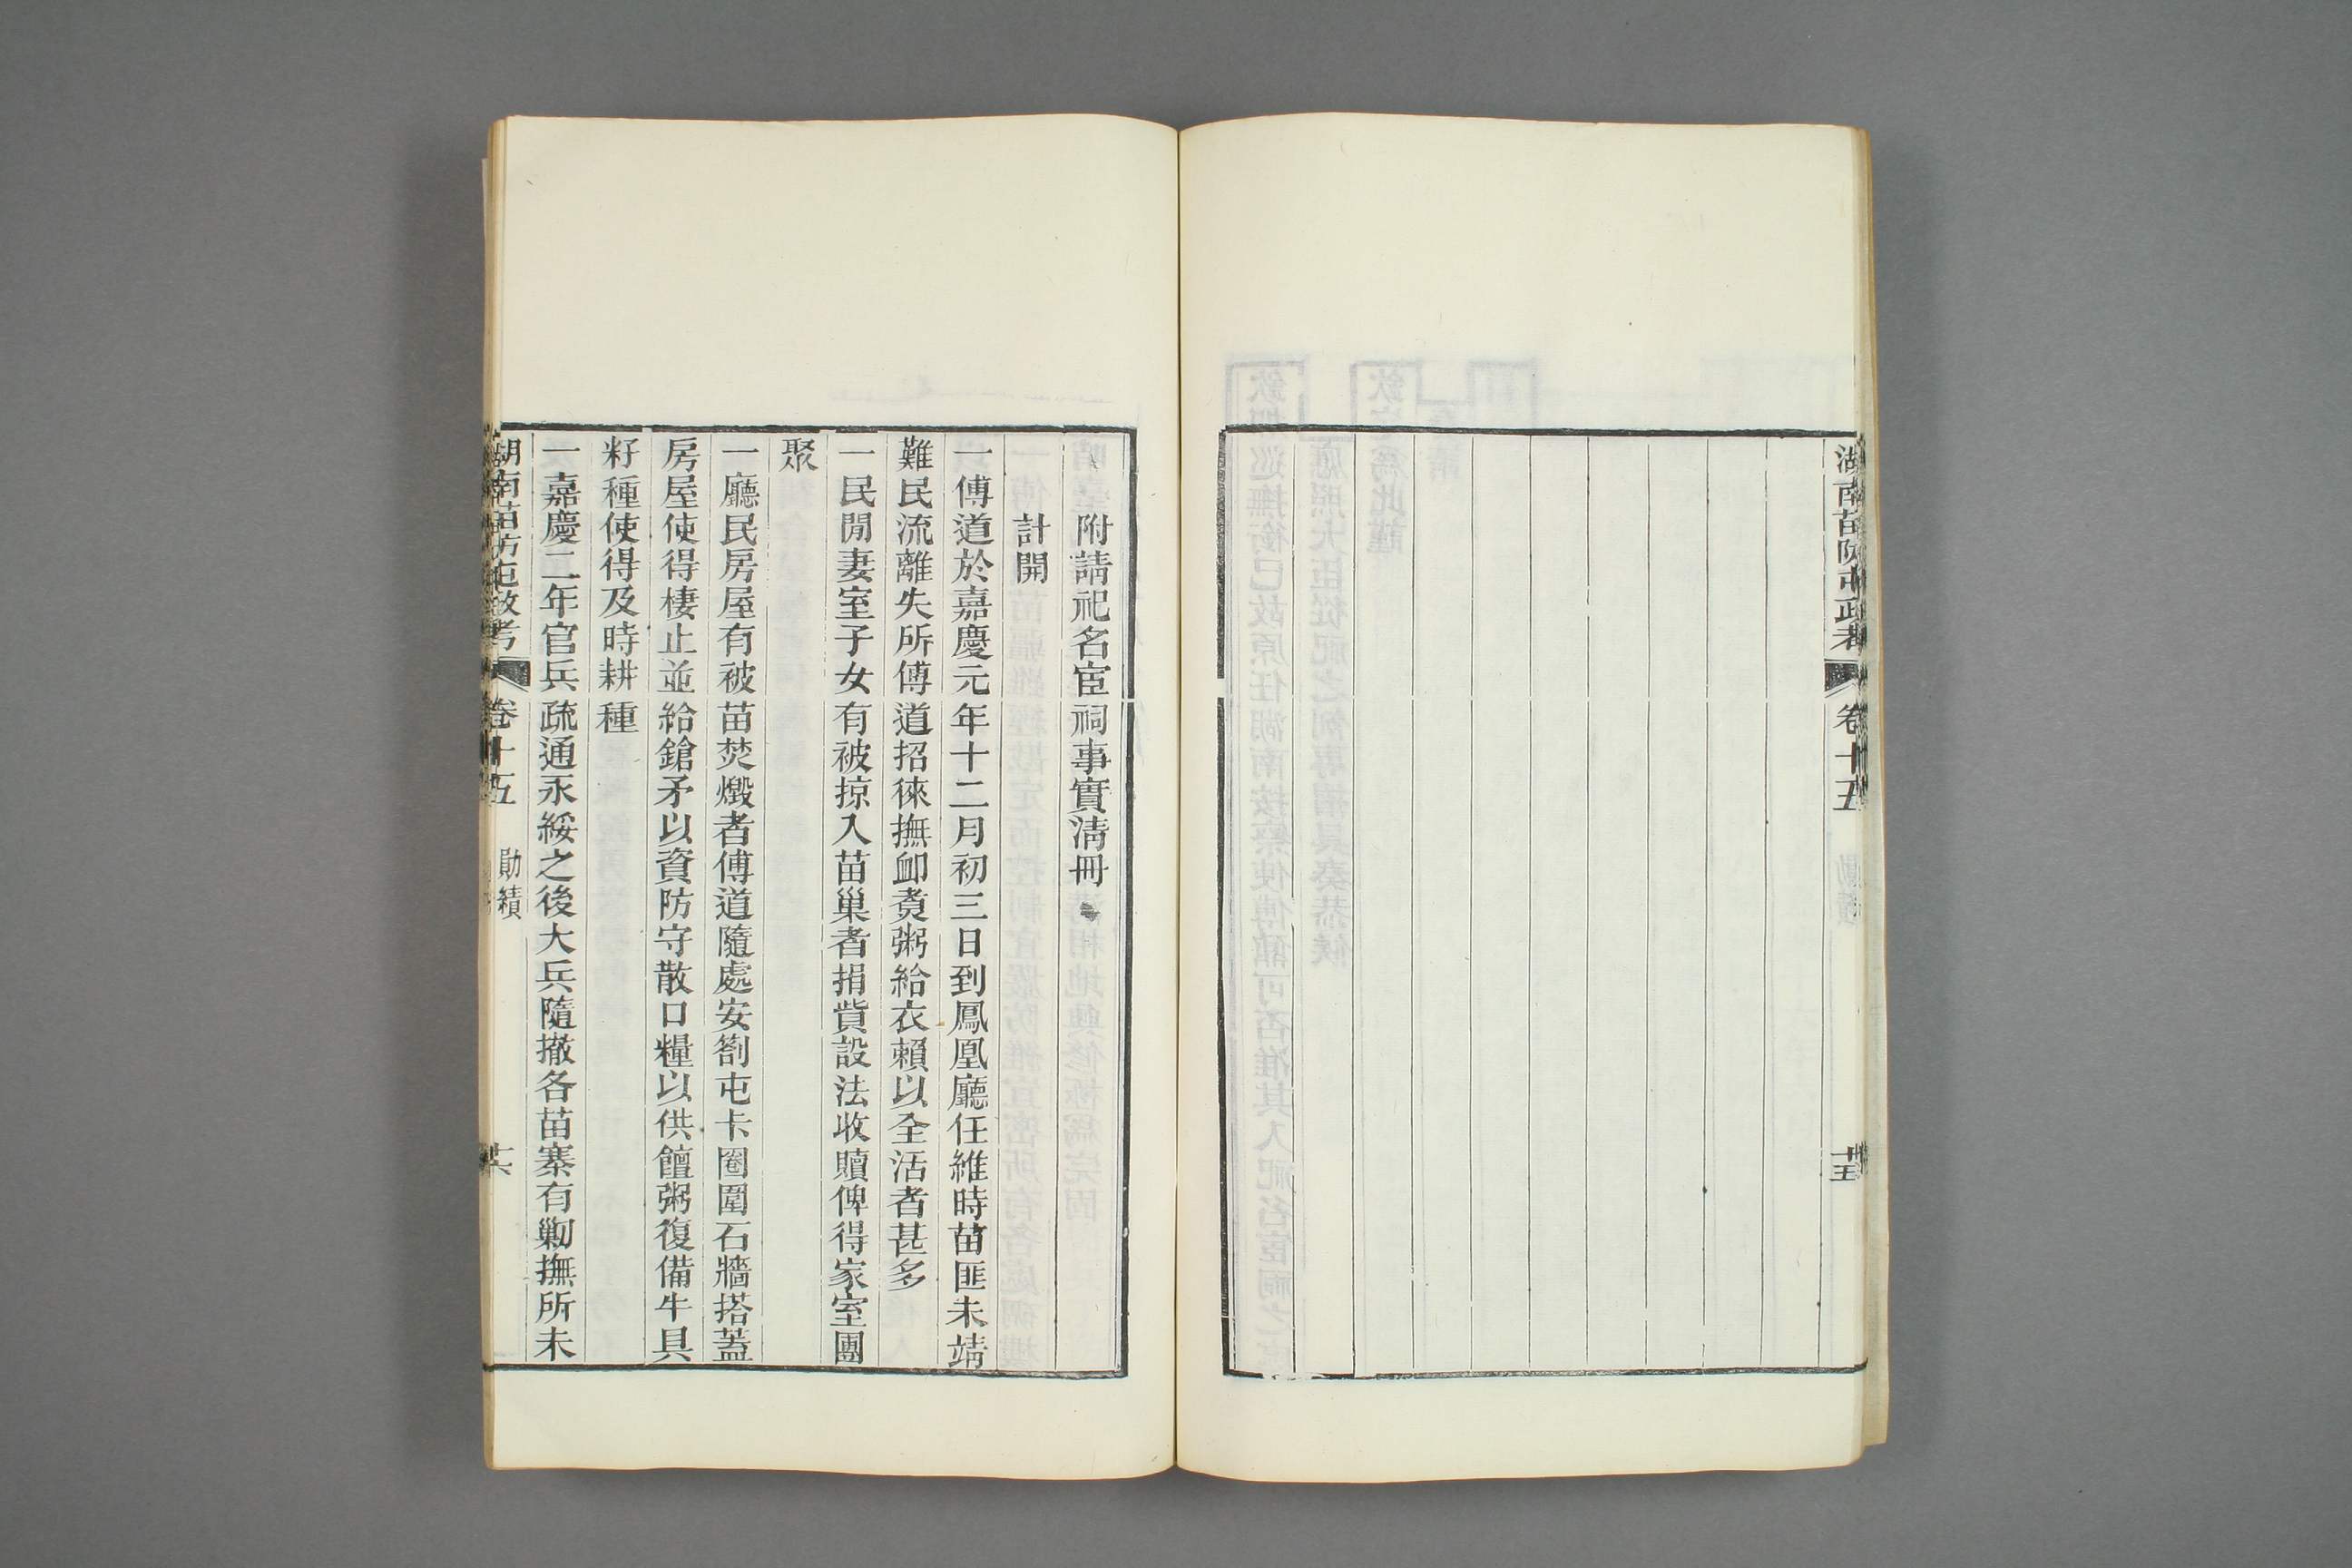 湖南苗防屯政考
卷十五
勛績
十五
附請祀名宦祠事實清冊
計開
一傅道於嘉慶元年十二月初三日到鳳凰廳任維時苗匪未靖
難民流離失所傅道招徠撫卹煑粥給衣賴以全活者甚多
一民閒妻室子女有被掠入苗巢者捐貲設法收贖俾得家室團
聚
一廳民房屋有被苗焚燬者傅道隨處安劄屯卡圈圍石牆搭蓋
房屋使得棲止並給鎗矛以資防守散口糧以供饘粥復備牛具
籽種使得及時耕種
一嘉慶二年官兵疏通永綏之後大兵隨撤各苗寨有勦撫所未
湖南苗防屯政考
卷十五
勛績
十六